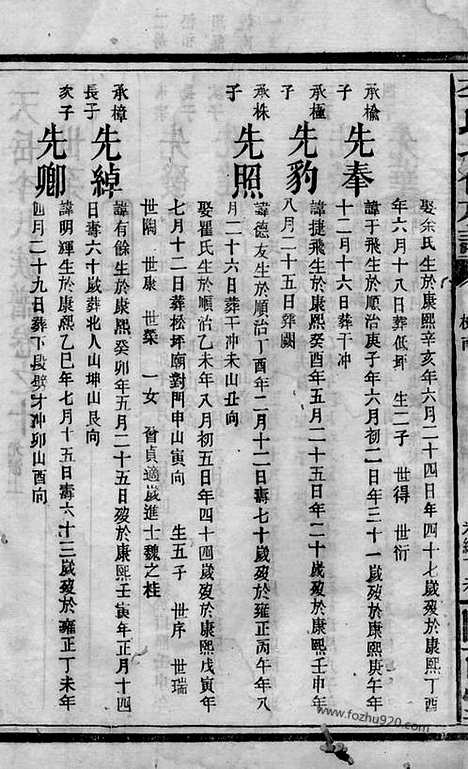 娶余氏生於康熙辛亥年六月二十四日年四十七歲歿於康熙丁酉
年六月十八日葬低坪 生二子 世得 世衍
承榆子 先奉
諱于飛生於順治庚子年六月初二日年三十一歲歿於康熙庚午年
十二月十六日葬干冲
承極子 先豹
諱捷飛生於康熙癸酉年五月二十五日年二十歲歿於康熙壬申年
八月二十五日葬闕
承株子 先照
諱德友生於順治丁酉年二月十二日壽七十歲歿於雍正丙午年八
月二十六日葬干冲未山丑向
娶瞿氏生於順治乙未年八月初五日年四十四歲歿於康熙戊寅年
七月十二日葬松坪廟對門申山寅向 生五子 世序 世瑞
世陶 世康 世榮 一女 晉貞適歲進士魏之桂
承樟長子 先綽
諱有餘生於康熙癸卯年五月二十五日歿於康熙壬寅年正月十四
日壽六十歲葬北人山坤山艮向
次子 先卿
諱明輝生於康熙乙巳年七月十五日壽六十三歲歿於雍正丁未年
四月二十九日葬下段劈才冲卯山酉向
www.fozhu920.com